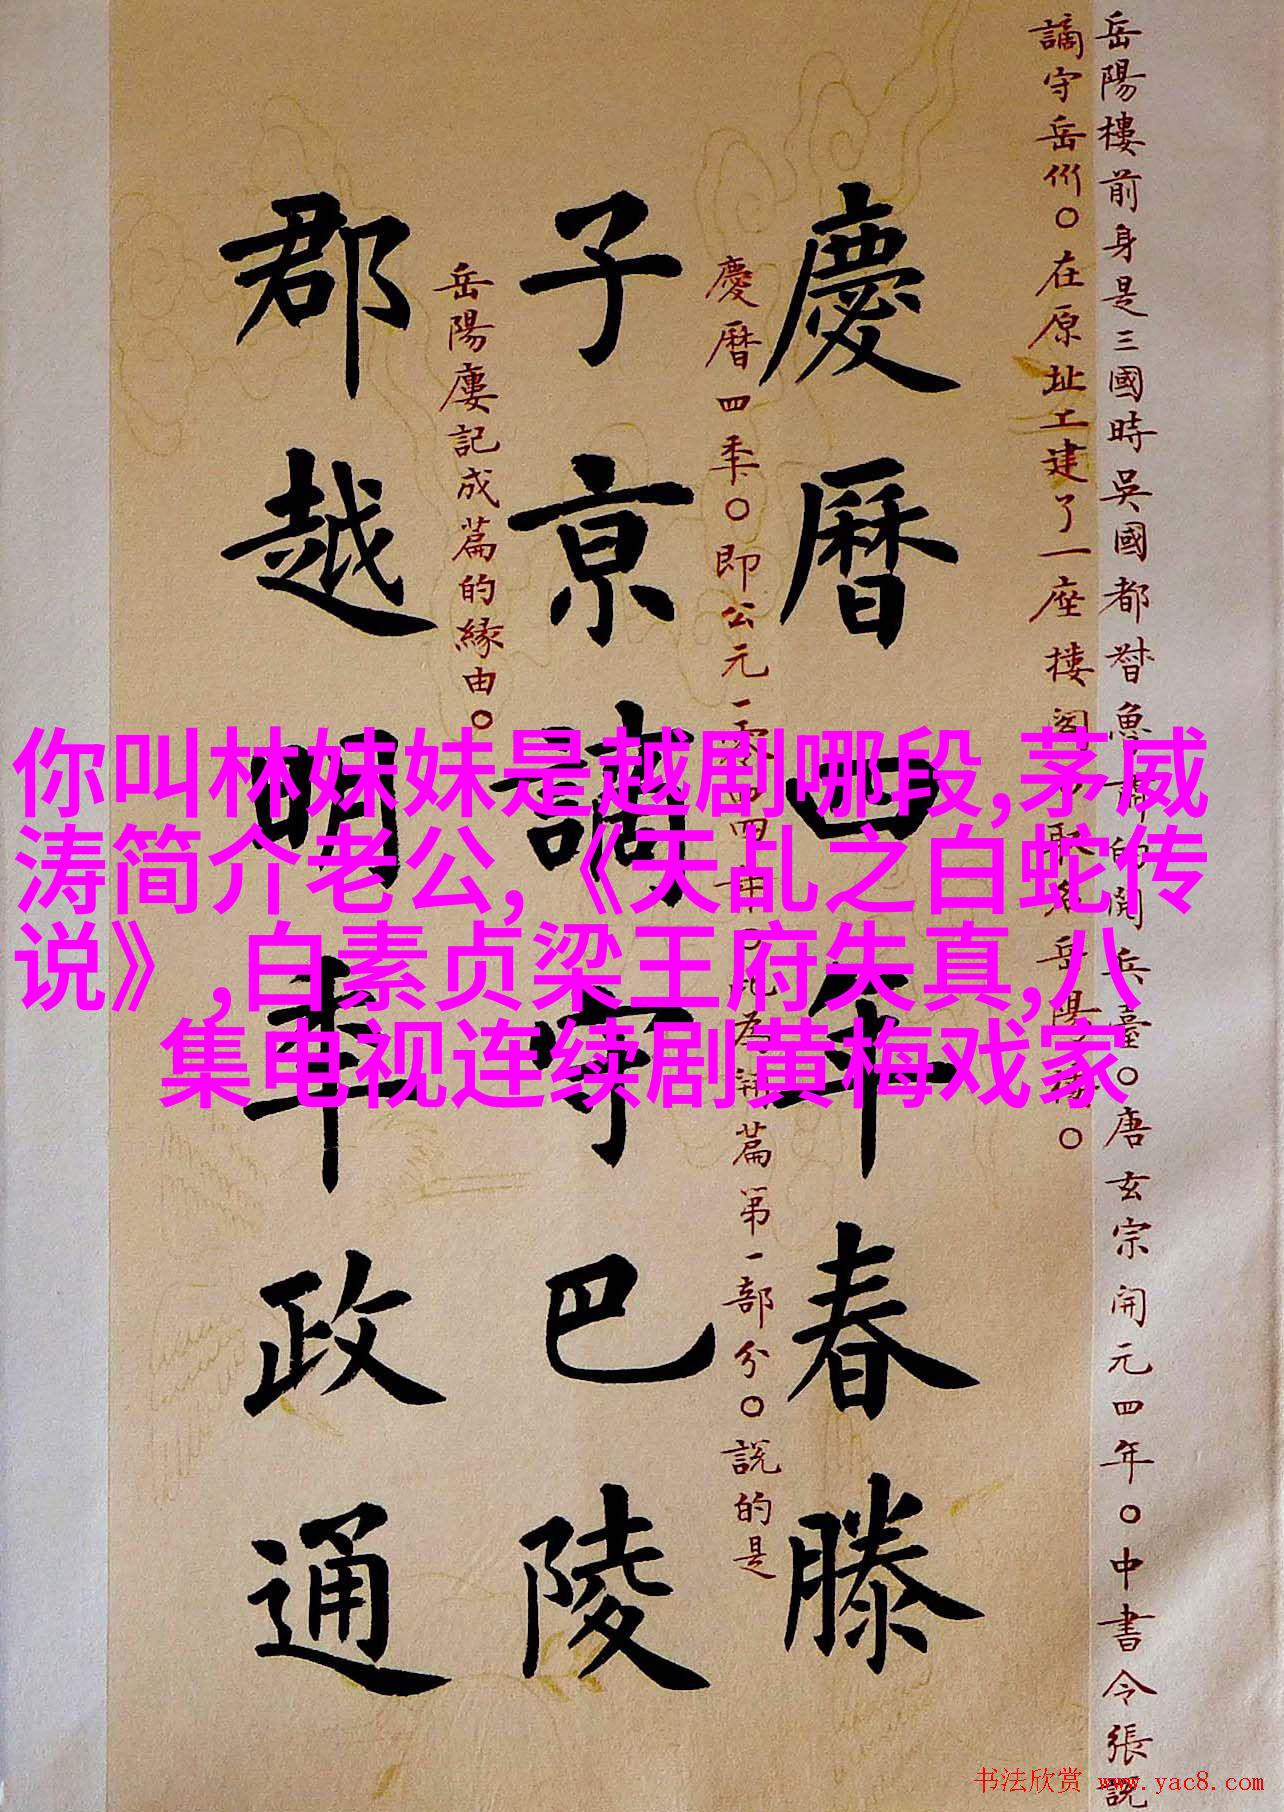 岳陽樓前身是三國時吳國都督魯肅的閱兵臺。唐玄宗開元四年。中書令張説
謫守岳州。在原址上建了一座樓閣。取名岳陽樓。
慶曆四年春滕
慶曆四年。即公元一零四四年。此為 篇第一部分。説的是
子京謫守巴陵
岳陽樓記成篇的緣由。
郡越明年政通
你叫林妹妹是越剧哪段,茅威
涛简介老公,《天乩之白蛇传
说》,白素贞梁王府失真,八
集电视连续剧黄梅戏家
书法欣赏 www.yac8.com